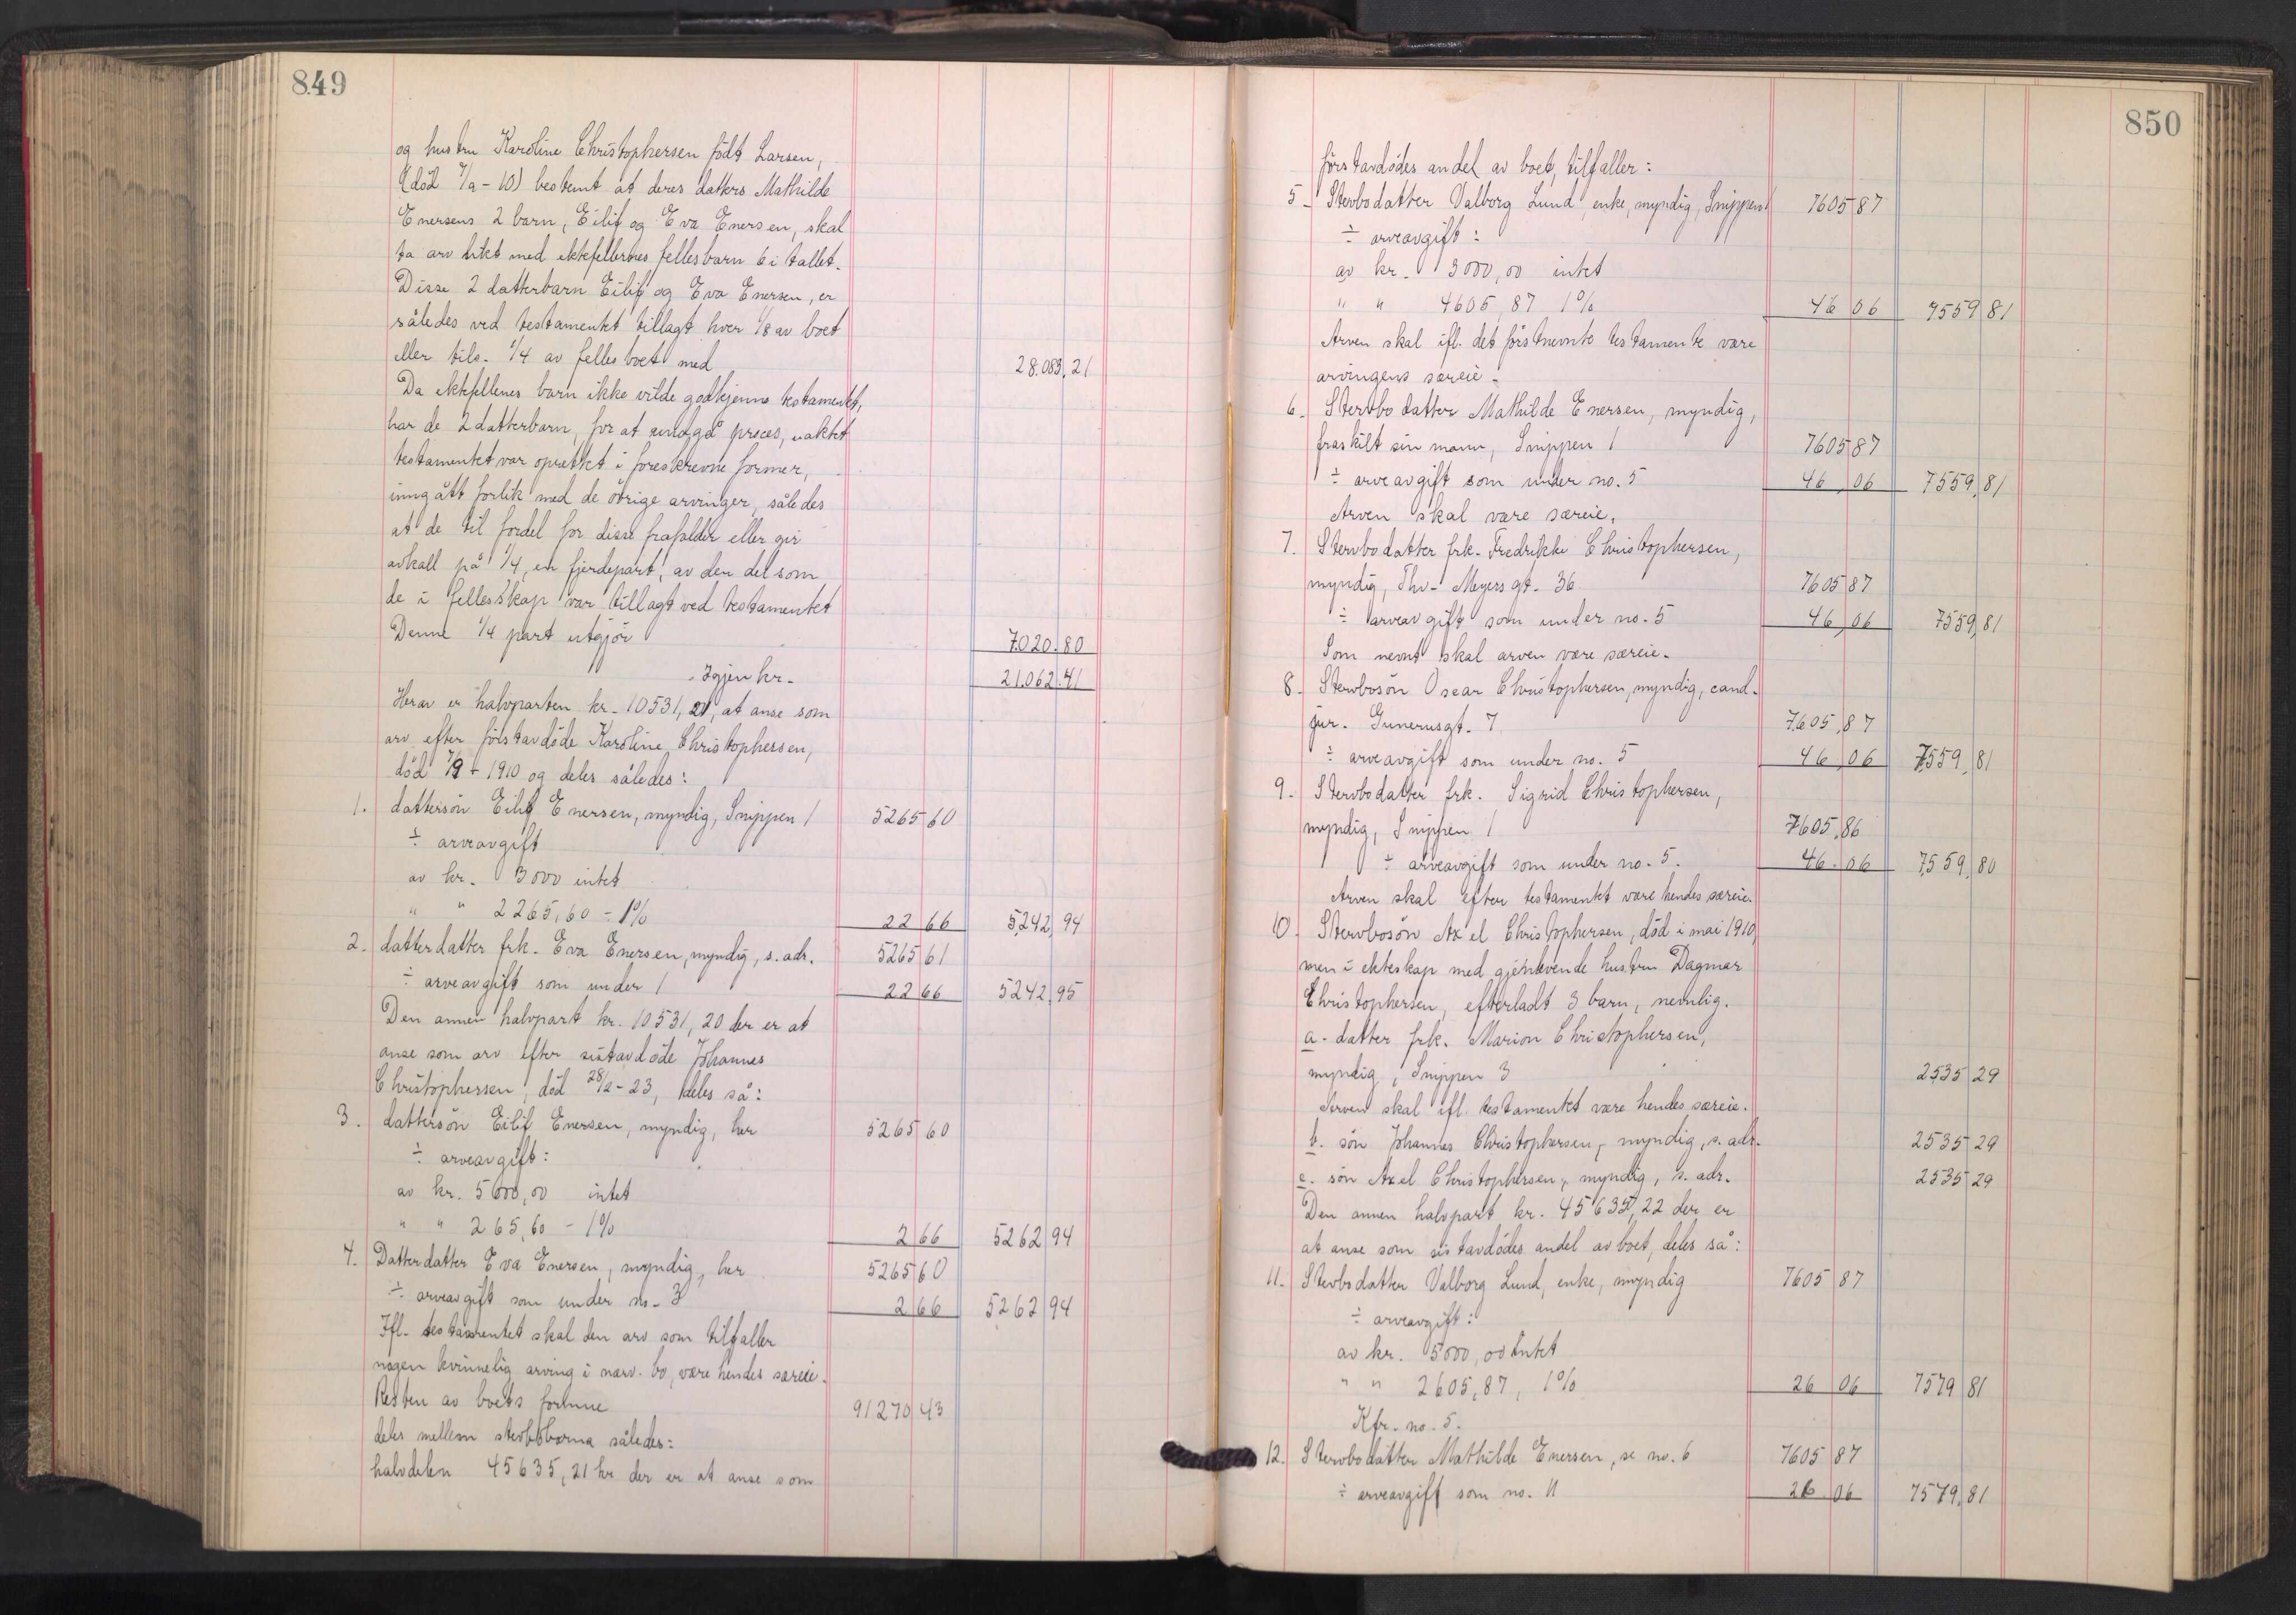 849
og hustru Karoline Christophersen född Larsen,
(död 7/9 - 10) bestemt at deres datters Mathilde
Enersens 2 barn, Eilif og Eva Enersen, skal
ta arv likt med ektefellernes fellesbarn 6 i tallet.
Disse 2 datterbarn Eilif og Eva Enersen, er
således ved testamentet tillagt hver 1/8 av boet
eller tils. 1/4 av fellesboet med 28.083,21
Da ektefellenes barn ikke vilde godkjenne testamentet,
har de 2 datterbarn, for at undgå proces, uaktet
testamentet var oprettet i foreskrevne former,
inngått forlik med de övrige arvinger, således
at de til fordel for disse frafalder eller gir
avkall på 1/4, en fjerdepart, av den del som
de i fellesskap var tillagt ved testamentet
Denne 1/4 part utgjör 7.020.80
Igjen kr. 21.062.41
Herav er halvparten kr. 10531,21, at anse som
arv efter förstavdöde Karoline Christophersen,
död 7/9 - 1910 og deles således:
1. dattersön Eilif Enersen, myndig, Snippen 1 5265 60
÷ arveavgift
av kr. 3000 intet
" " 2265,60 - 1% 22 66 5242,94
2. datterdatter frk. Eva Enersen, myndig, s. adr. 5265 61
÷ arveavgift som under 1 22 66 5242,95
Den annen halvpart kr. 10531,20 der er at
anse som arv efter sistavdöde Johannes
Christophersen, död 28/2 - 23, deles så:
3. dattersön Eilif Enersen, myndig, her 5265 60
÷ arveavgift:
av kr. 5000,00 intet
" " 265,60 - 1% 2 66 5262 94
4. Datterdatter Eva Enersen, myndig, her 5265 60
÷ arveavgift som under no. 3 2 66 5262 94
Ifl. testamentet skal den arv som tilfaller
nogen kvinnelig arving i nærv. bo, være hendes særeie.
Resten av boets formue 91270 43
deles mellem stervbobarna således:
halvdelen 45635,21 kr der er at anse som
850
förstavdödes andel av boet, tilfaller:
5. Stervbodatter Valborg Lund, enke, myndig, Snippen 1 7605 87
÷ arveavgift:
av kr. 3000,00 intet
" " 4605,87 1% 46 06 7559 81
Arven skal ifl. det förstnevnte testamente være
arvingens særeie.
6. Stervbodatter Mathilde Enersen, myndig,
fraskilt sin mann, Snippen 1 7605 87
÷ arveavgift som under no. 5 46,06 7559,81
Arven skal være særeie.
7. Stervbodatter frk. Fredrikke Christophersen,
myndig, Thv. Meyersgt. 36 7605 87
÷ arveavgift som under no. 5 46,06 7559,81
Som nevnt skal arven være særeie.
8. Stervbosön Oscar Christophersen, myndig, cand.
jur. Gunerusgt. 7 7.605,87
÷ arveavgift som under no. 5 46,06 7,559,81
9. Stervbodatter frk. Sigrid Christophersen,
myndig, Snippen 1 7605,86
÷ arveavgift som under no. 5. 46.06 7,559,80
Arven skal efter testamentet være hendes særeie.
10. Stervbosön Axel Christophersen, död i mai 1910,
men i ekteskap med gjenlevende hustru Dagmar
Christophersen, efterladt 3 barn, nemlig.
a. datter frk. Marion Christophersen,
myndig, Snippen 3 2535 29
Arven skal ifl. testamentet være hendes særeie.
b. sön Johannes Christophersen, myndig, s. adr. 2535 29
c. sön Axel Christophersen, myndig, s. adr. 2535 29
Den annen halvpart kr. 45635,22 der er
at anse som sistavdödes andel av boet, deles så:
11. Stervbodatter Valborg Lund, enke, myndig 7605 87
÷ arveavgift:
av kr. 5000,00 intet
" " 2605,87, 1% 26 06 7579 81
Kfr. no. 5.
12. Stervbodatter Mathilde Enersen, se no. 6 7605 87
÷ arveavgift som no. 11 26.06 7579,81